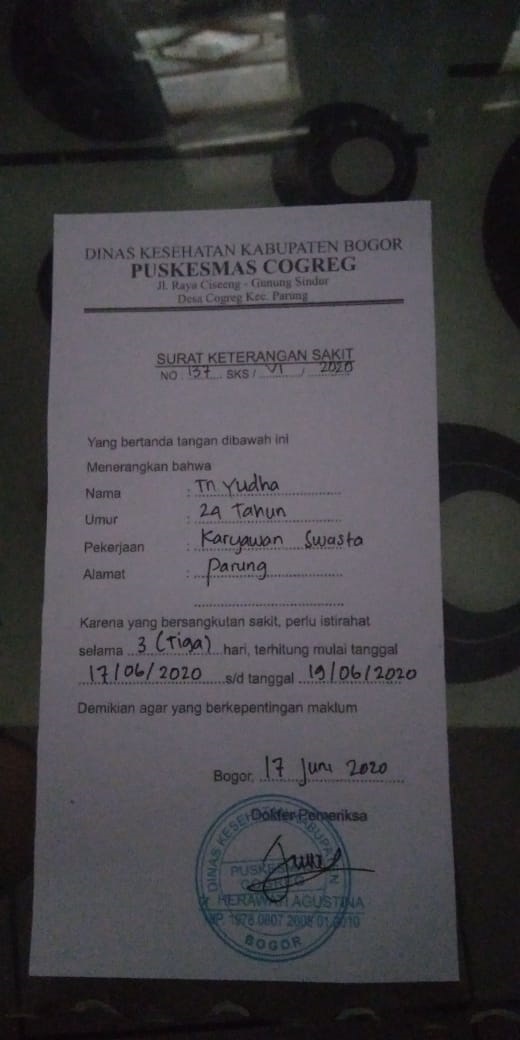 DINAS KESEHATAN KABUPATEN BOGOR
PUSKESMAS COGREG
Jl. Raya Ciseeng - Gunung Sindur
Desa Cogreg Kec. Parung
SURAT KETERANGAN SAKIT
NO 137 SKS / VI / 2020
Yang bertanda tangan dibawah ini
Menerangkan bahwa
Nama : Tn Yudha
Umur : 29 Tahun
Pekerjaan : Karyawan Swasta
Alamat : Parung
Karena yang bersangkutan sakit, perlu istirahat
selama 3 (Tiga) hari, terhitung mulai tanggal
17/06/2020 s/d tanggal 19/06/2020
Demikian agar yang berkepentingan maklum
Bogor, 17 Juni 2020
Dokter Pemeriksa
DINAS KESEHATAN KABUPATEN
PUSKESMAS
COGREG
HERAWATI AGUSTINA
BOGOR